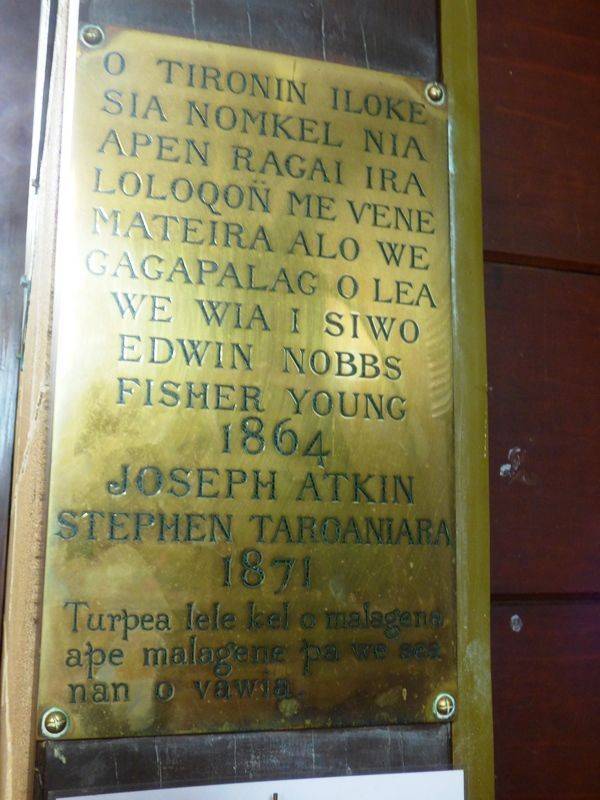 O TIRONIN ILOKE
SIA NOMKEL NIA
APEN RAGAI IRA
LOLOQOÑ ME VENE
MATEIRA ALO WE
GAGAPALAG O LEA
WE WIA I SIWO
EDWIN NOBBS
FISHER YOUNG
1864
JOSEPH ATKIN
STEPHEN TAROANIARA
1871
Turpea lele kel o malagene
ape malagene pa we sea
nan o vawia